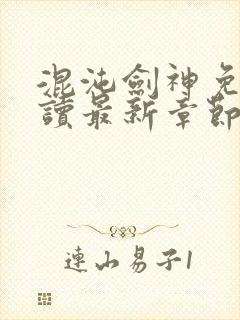 混沌劍神免
讀最新章節
連山易子1